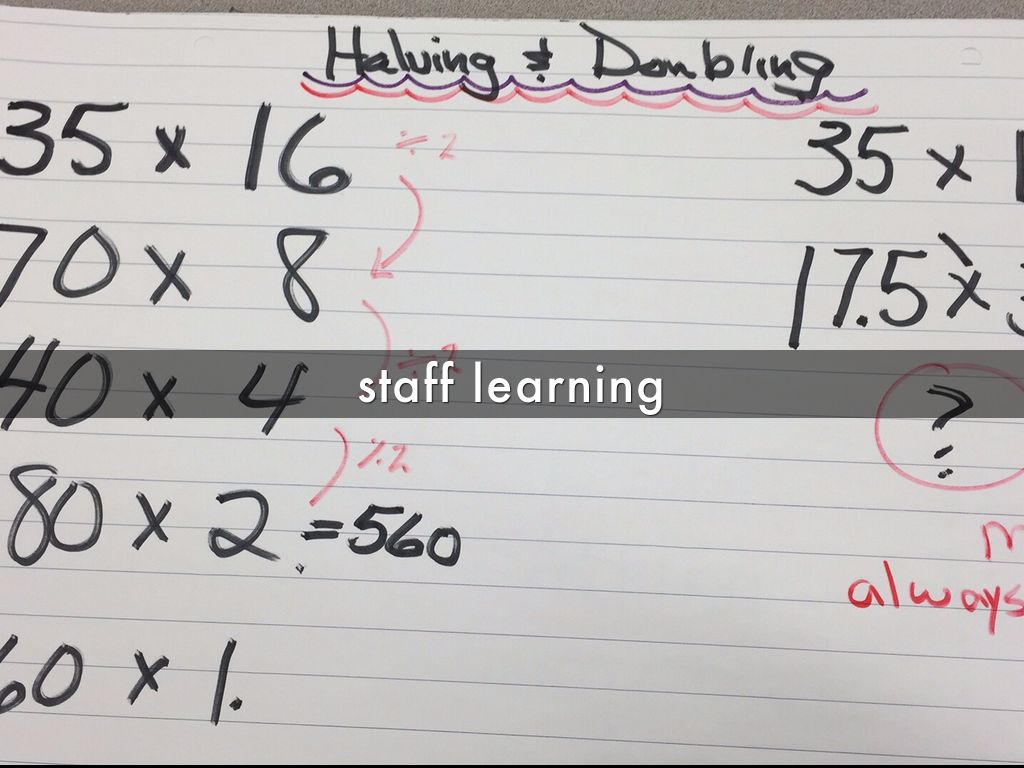 Halving & Doubling
35 x 16 ÷2
70 x 8
40 x 4 ÷2
80 x 2 = 560
60 x 1.
÷2
35 x 1
17.5 x 3
?
always
staff learning